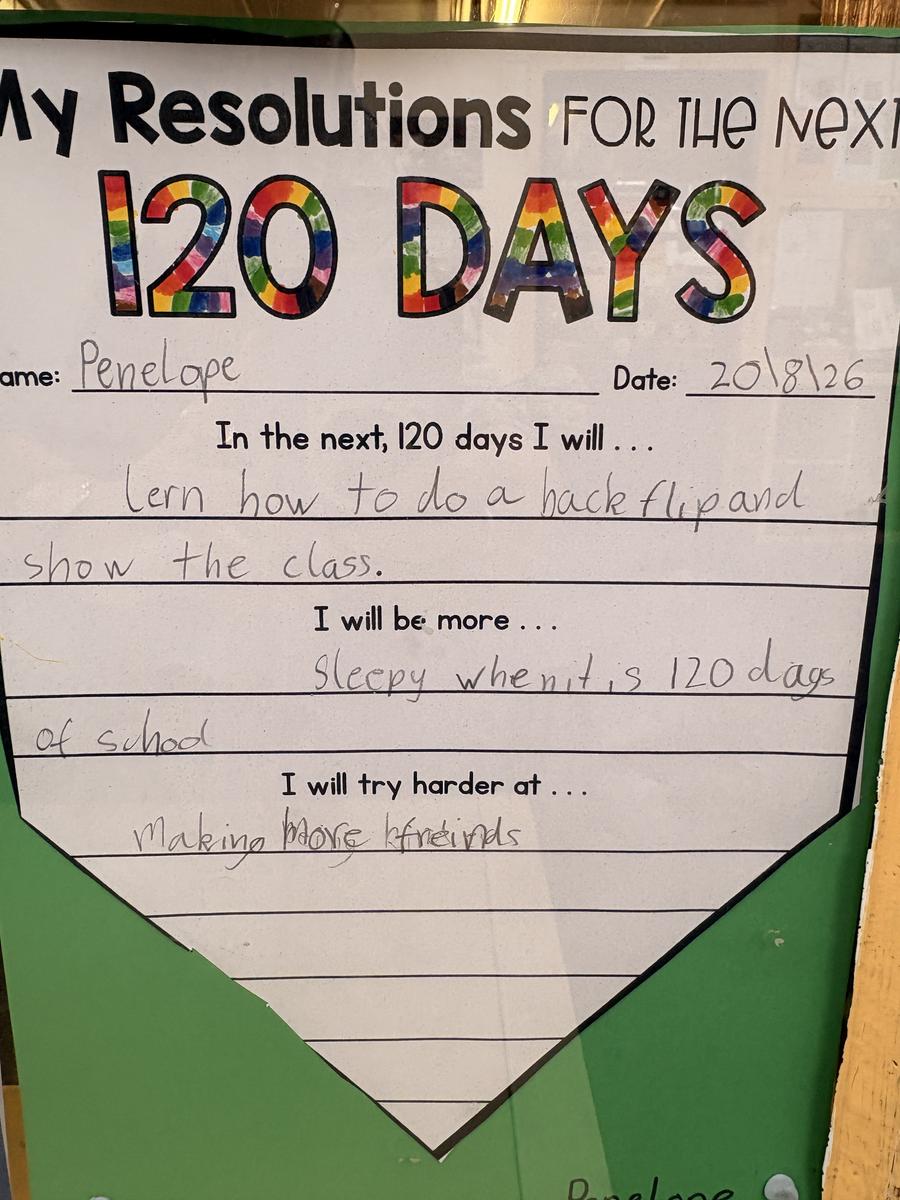 My Resolutions FOR THE NEXT
120 DAYS
ame: Penelope Date: 20\8\26
In the next, 120 days I will ...
lern how to do a back flip and
show the class.
I will be more ...
Sleepy when it is 120 dags
of school
I will try harder at ...
Making More freinds
Penelope